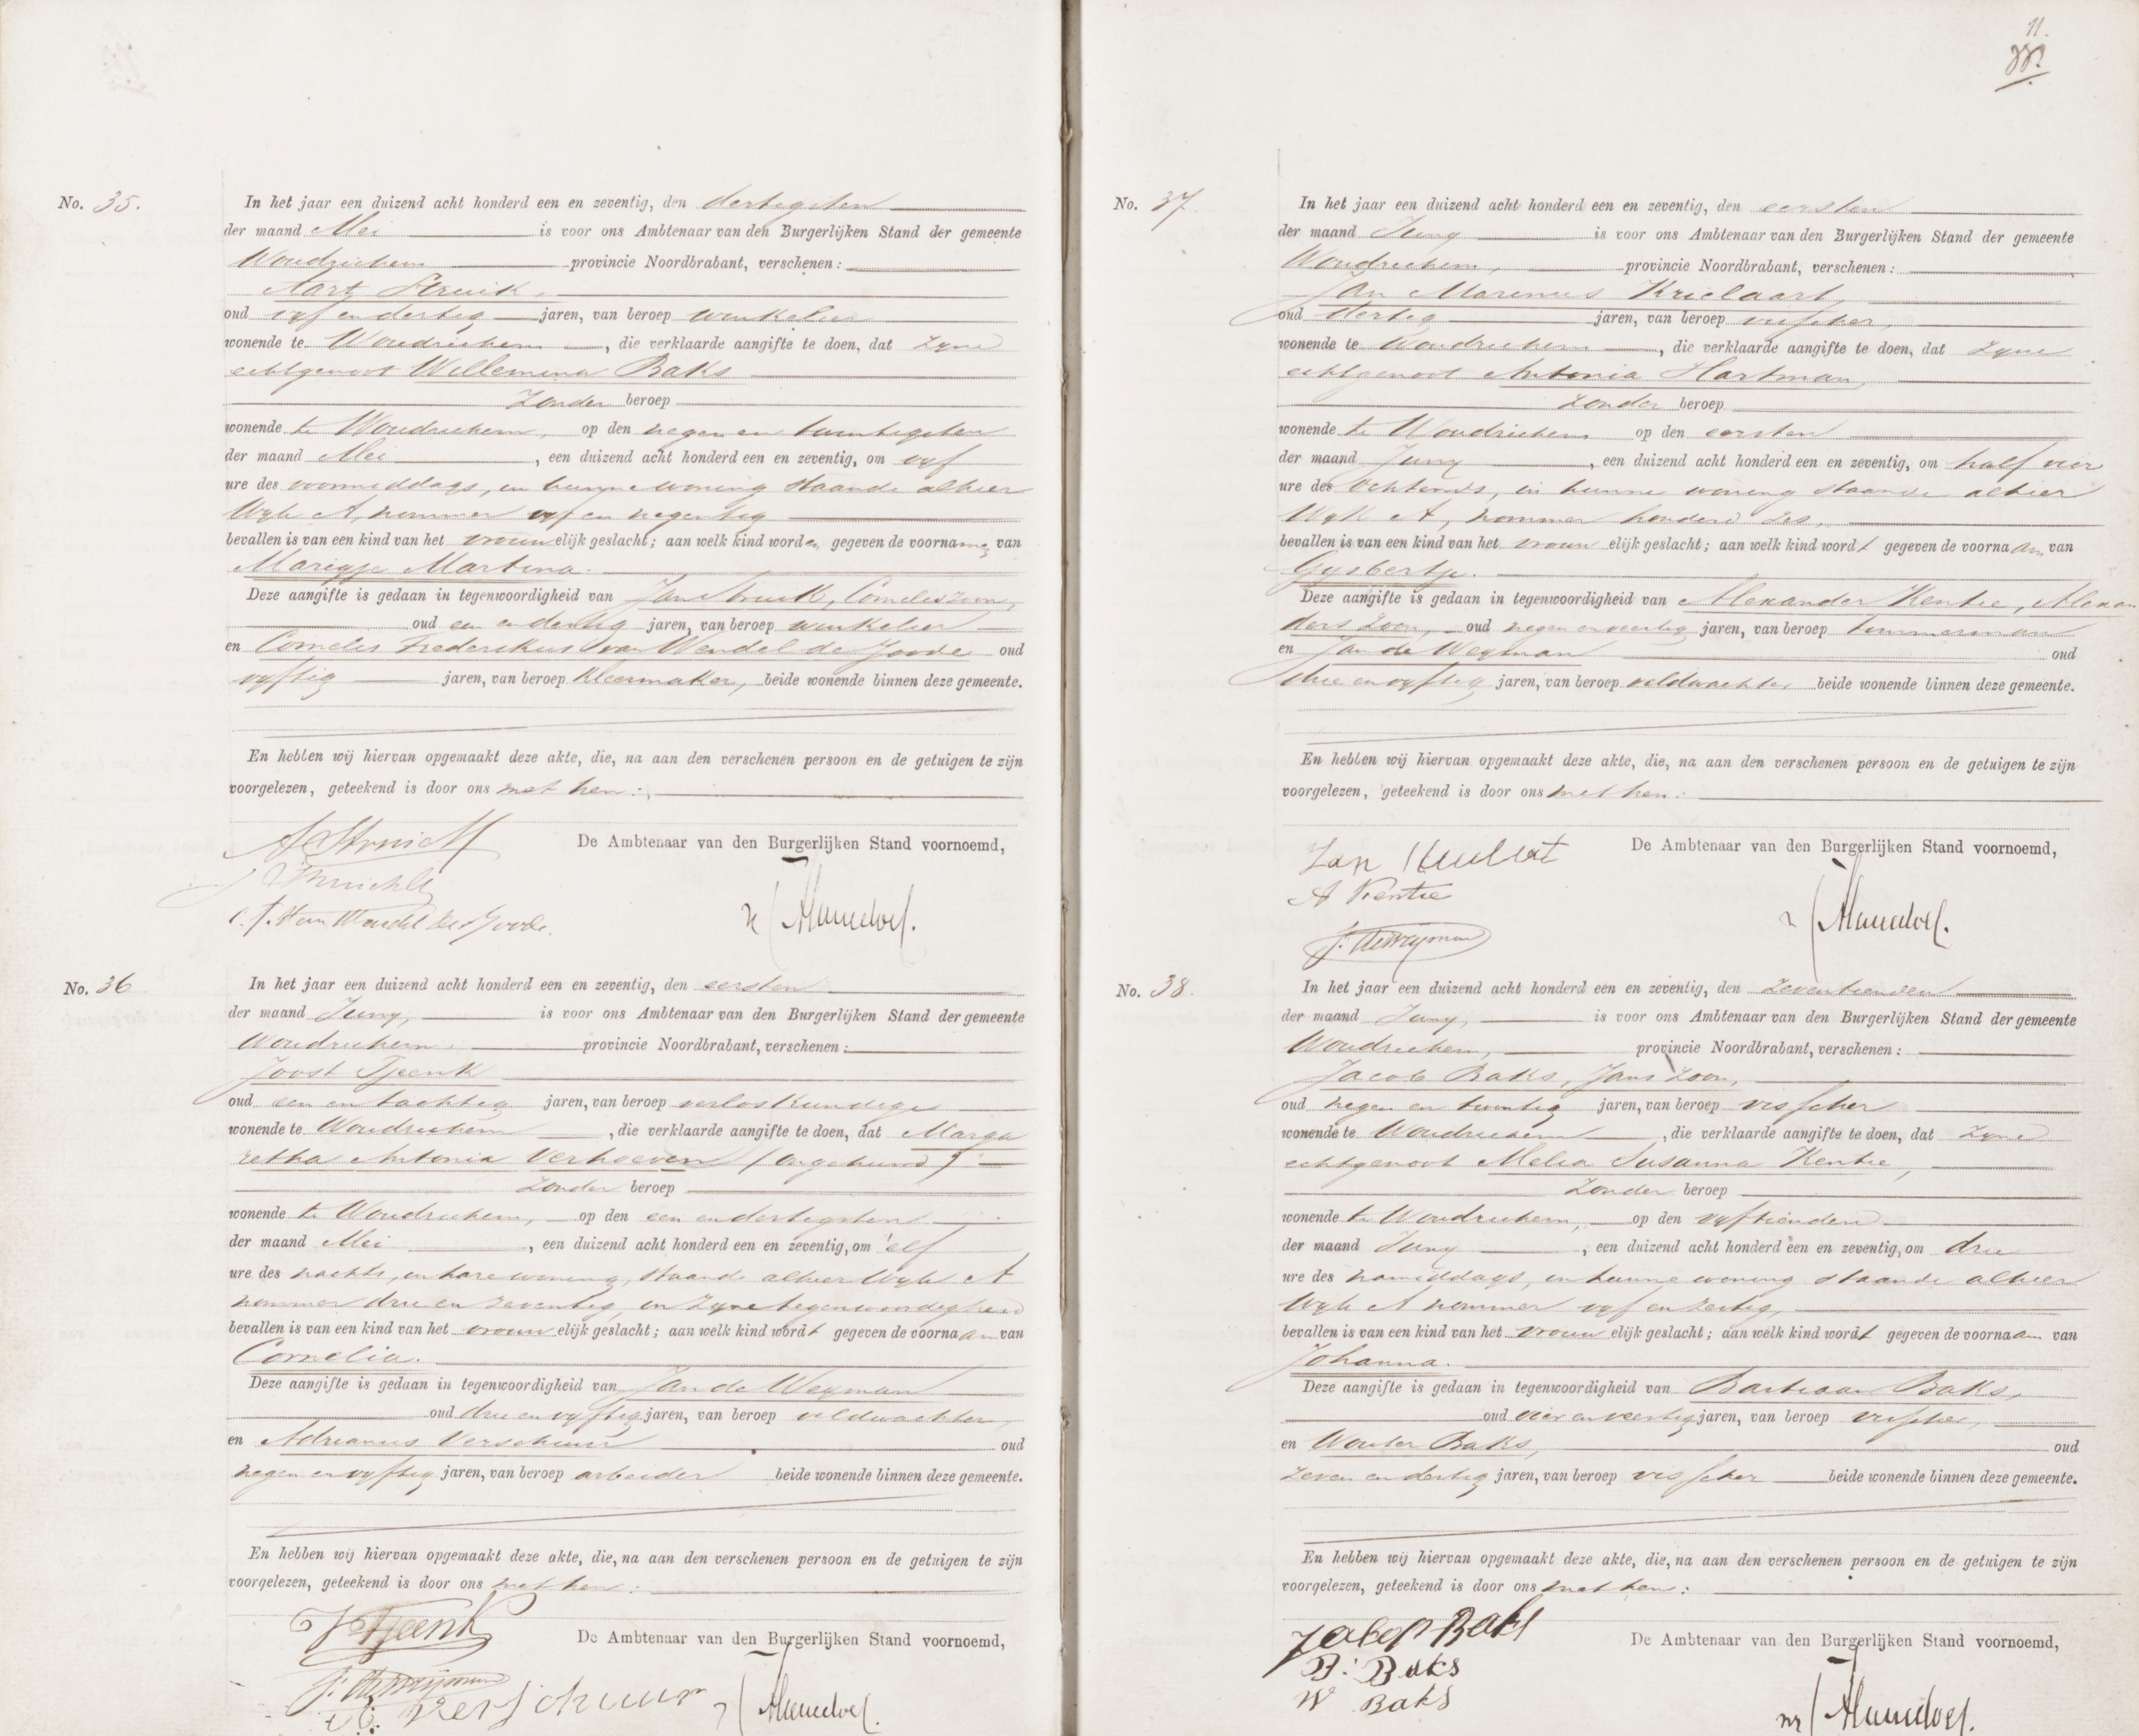 No. 35.
In het jaar een duizend acht honderd een en zeventig, den dertigsten
der maand Mei is voor ons Ambtenaar van den Burgerlijken Stand der gemeente
Woudrichem provincie Noordbrabant, verschenen:
Aart Struik,
oud vyf en dertig jaren, van beroep winkelier
wonende te Woudrichem, die verklaarde aangifte te doen, dat zyne
echtgenoot Willemina Baks
zonder beroep
wonende te Woudrichem, op den negen en twintigsten
der maand Mei, een duizend acht honderd een en zeventig, om vyf
ure des voormiddags, in hunne woning staande alhier
Wyk A, nommer vyf en negentig
bevallen is van een kind van het vrouwelijk geslacht; aan welk kind worden gegeven de voornamen van
Marigje Martina.
Deze aangifte is gedaan in tegenwoordigheid van Jan Struik, Corneliszoon,
oud een en dertig jaren, van beroep winkelier
en Cornelis Frederikus van Wendel de Joode oud
vyftig jaren, van beroep kleermaker, beide wonende binnen deze gemeente.
En hebben wij hiervan opgemaakt deze akte, die, na aan den verschenen persoon en de getuigen te zijn
voorgelezen, geteekend is door ons met hen:
De Ambtenaar van den Burgerlijken Stand voornoemd,
A Struick
C. F. van Wendel de Joode.
No. 36
In het jaar een duizend acht honderd een en zeventig, den eersten
der maand Juny, is voor ons Ambtenaar van den Burgerlijken Stand der gemeente
Woudrichem, provincie Noordbrabant, verschenen:
Joost Tjeenk
oud een en tachtig jaren, van beroep verloskundige
wonende te Woudrichem, die verklaarde aangifte te doen, dat Marga
retha Antonia Verhoeven (ongehuwd)
zonder beroep
wonende te Woudrichem, op den een en dertigsten
der maand Mei, een duizend acht honderd een en zeventig, om elf
ure des nachts, in hare woning, staande alhier Wyk A
nommer drie en zeventig, in zyne tegenwoordigheid
bevallen is van een kind van het vrouwelijk geslacht; aan welk kind wordt gegeven de voornaam van
Cornelia.
Deze aangifte is gedaan in tegenwoordigheid van Jan de Weyman
oud drie en vyftig jaren, van beroep veldwachter,
en Adrianus Verschuur oud
negen en vyftig jaren, van beroep arbeider beide wonende binnen deze gemeente.
En hebben wij hiervan opgemaakt deze akte, die, na aan den verschenen persoon en de getuigen te zijn
voorgelezen, geteekend is door ons met hen:
De Ambtenaar van den Burgerlijken Stand voornoemd,
J Tjeenk
J. de Weijman
A: Verschuur
11.
No. 37.
In het jaar een duizend acht honderd een en zeventig, den eersten
der maand Juny is voor ons Ambtenaar van den Burgerlijken Stand der gemeente
Woudrichem, provincie Noordbrabant, verschenen:
Jan Marinus Krielaart,
oud dertig jaren, van beroep visscher,
wonende te Woudrichem, die verklaarde aangifte te doen, dat zyne
echtgenoot Antonia Hartman,
zonder beroep
wonende te Woudrichem op den eersten
der maand Juny, een duizend acht honderd een en zeventig, om half vier
ure des ochtends, in hunne woning staande alhier
Wyk A, nommer honderd zes,
bevallen is van een kind van het vrouwelijk geslacht; aan welk kind wordt gegeven de voornaam van
Gysbertje.
Deze aangifte is gedaan in tegenwoordigheid van Alexander Kentie, Alexan
ders zoon, oud negen en veertig jaren, van beroep timmerman
en Jan de Weyman oud
drie en vyftig jaren, van beroep veldwachter beide wonende binnen deze gemeente.
En hebben wij hiervan opgemaakt deze akte, die, na aan den verschenen persoon en de getuigen te zijn
voorgelezen, geteekend is door ons met hen:
De Ambtenaar van den Burgerlijken Stand voornoemd,
Jan
A Kentie
J. de Weijman
No. 38.
In het jaar een duizend acht honderd een en zeventig, den zeventienden
der maand Juny, is voor ons Ambtenaar van den Burgerlijken Stand der gemeente
Woudrichem, provincie Noordbrabant, verschenen:
Jacob Baks, Jans zoon,
oud negen en twintig jaren, van beroep visscher
wonende te Woudrichem, die verklaarde aangifte te doen, dat zyne
echtgenoot Melia Susanna Kentie,
zonder beroep
wonende te Woudrichem, op den vyftienden
der maand Juny, een duizend acht honderd een en zeventig, om drie
ure des namiddags, in hunne woning staande alhier
Wyk A nommer vyf en zestig,
bevallen is van een kind van het vrouwelijk geslacht; aan welk kind wordt gegeven de voornaam van
Johanna.
Deze aangifte is gedaan in tegenwoordigheid van Bastiaan Baks,
oud vier en veertig jaren, van beroep visscher,
en Wouter Baks, oud
zeven en dertig jaren, van beroep visscher beide wonende binnen deze gemeente.
En hebben wij hiervan opgemaakt deze akte, die, na aan den verschenen persoon en de getuigen te zijn
voorgelezen, geteekend is door ons met hen:
De Ambtenaar van den Burgerlijken Stand voornoemd,
Jacob Baks
B: Baks
W Baks